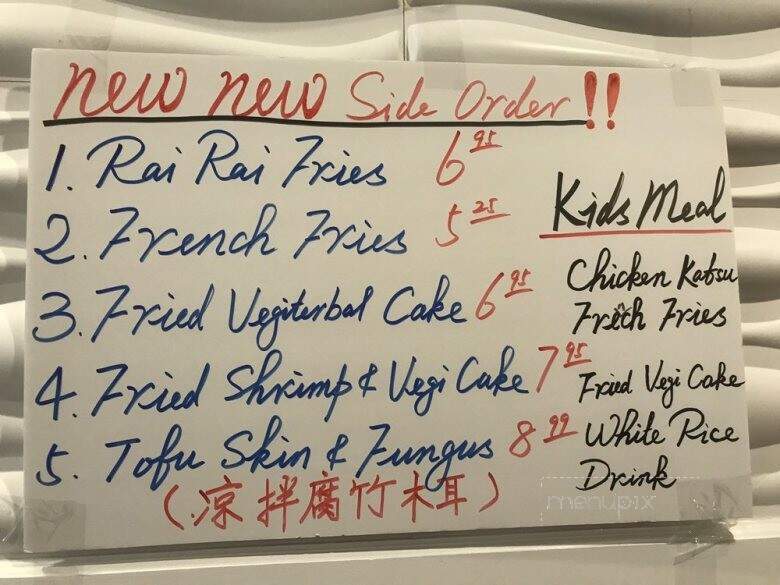 New New Side Order!!
1. Rai Rai Fries 6.95
2. French Fries 5.25
3. Fried Vegiterbal Cake 6.95
4. Fried Shrimp & Vegi Cake 7.95
5. Tofu Skin & Fungus 8.99
(凉拌腐竹木耳)
Kids Meal
Chicken Katsu
French Fries
Fried Vegi Cake
White Rice
Drink
menupix